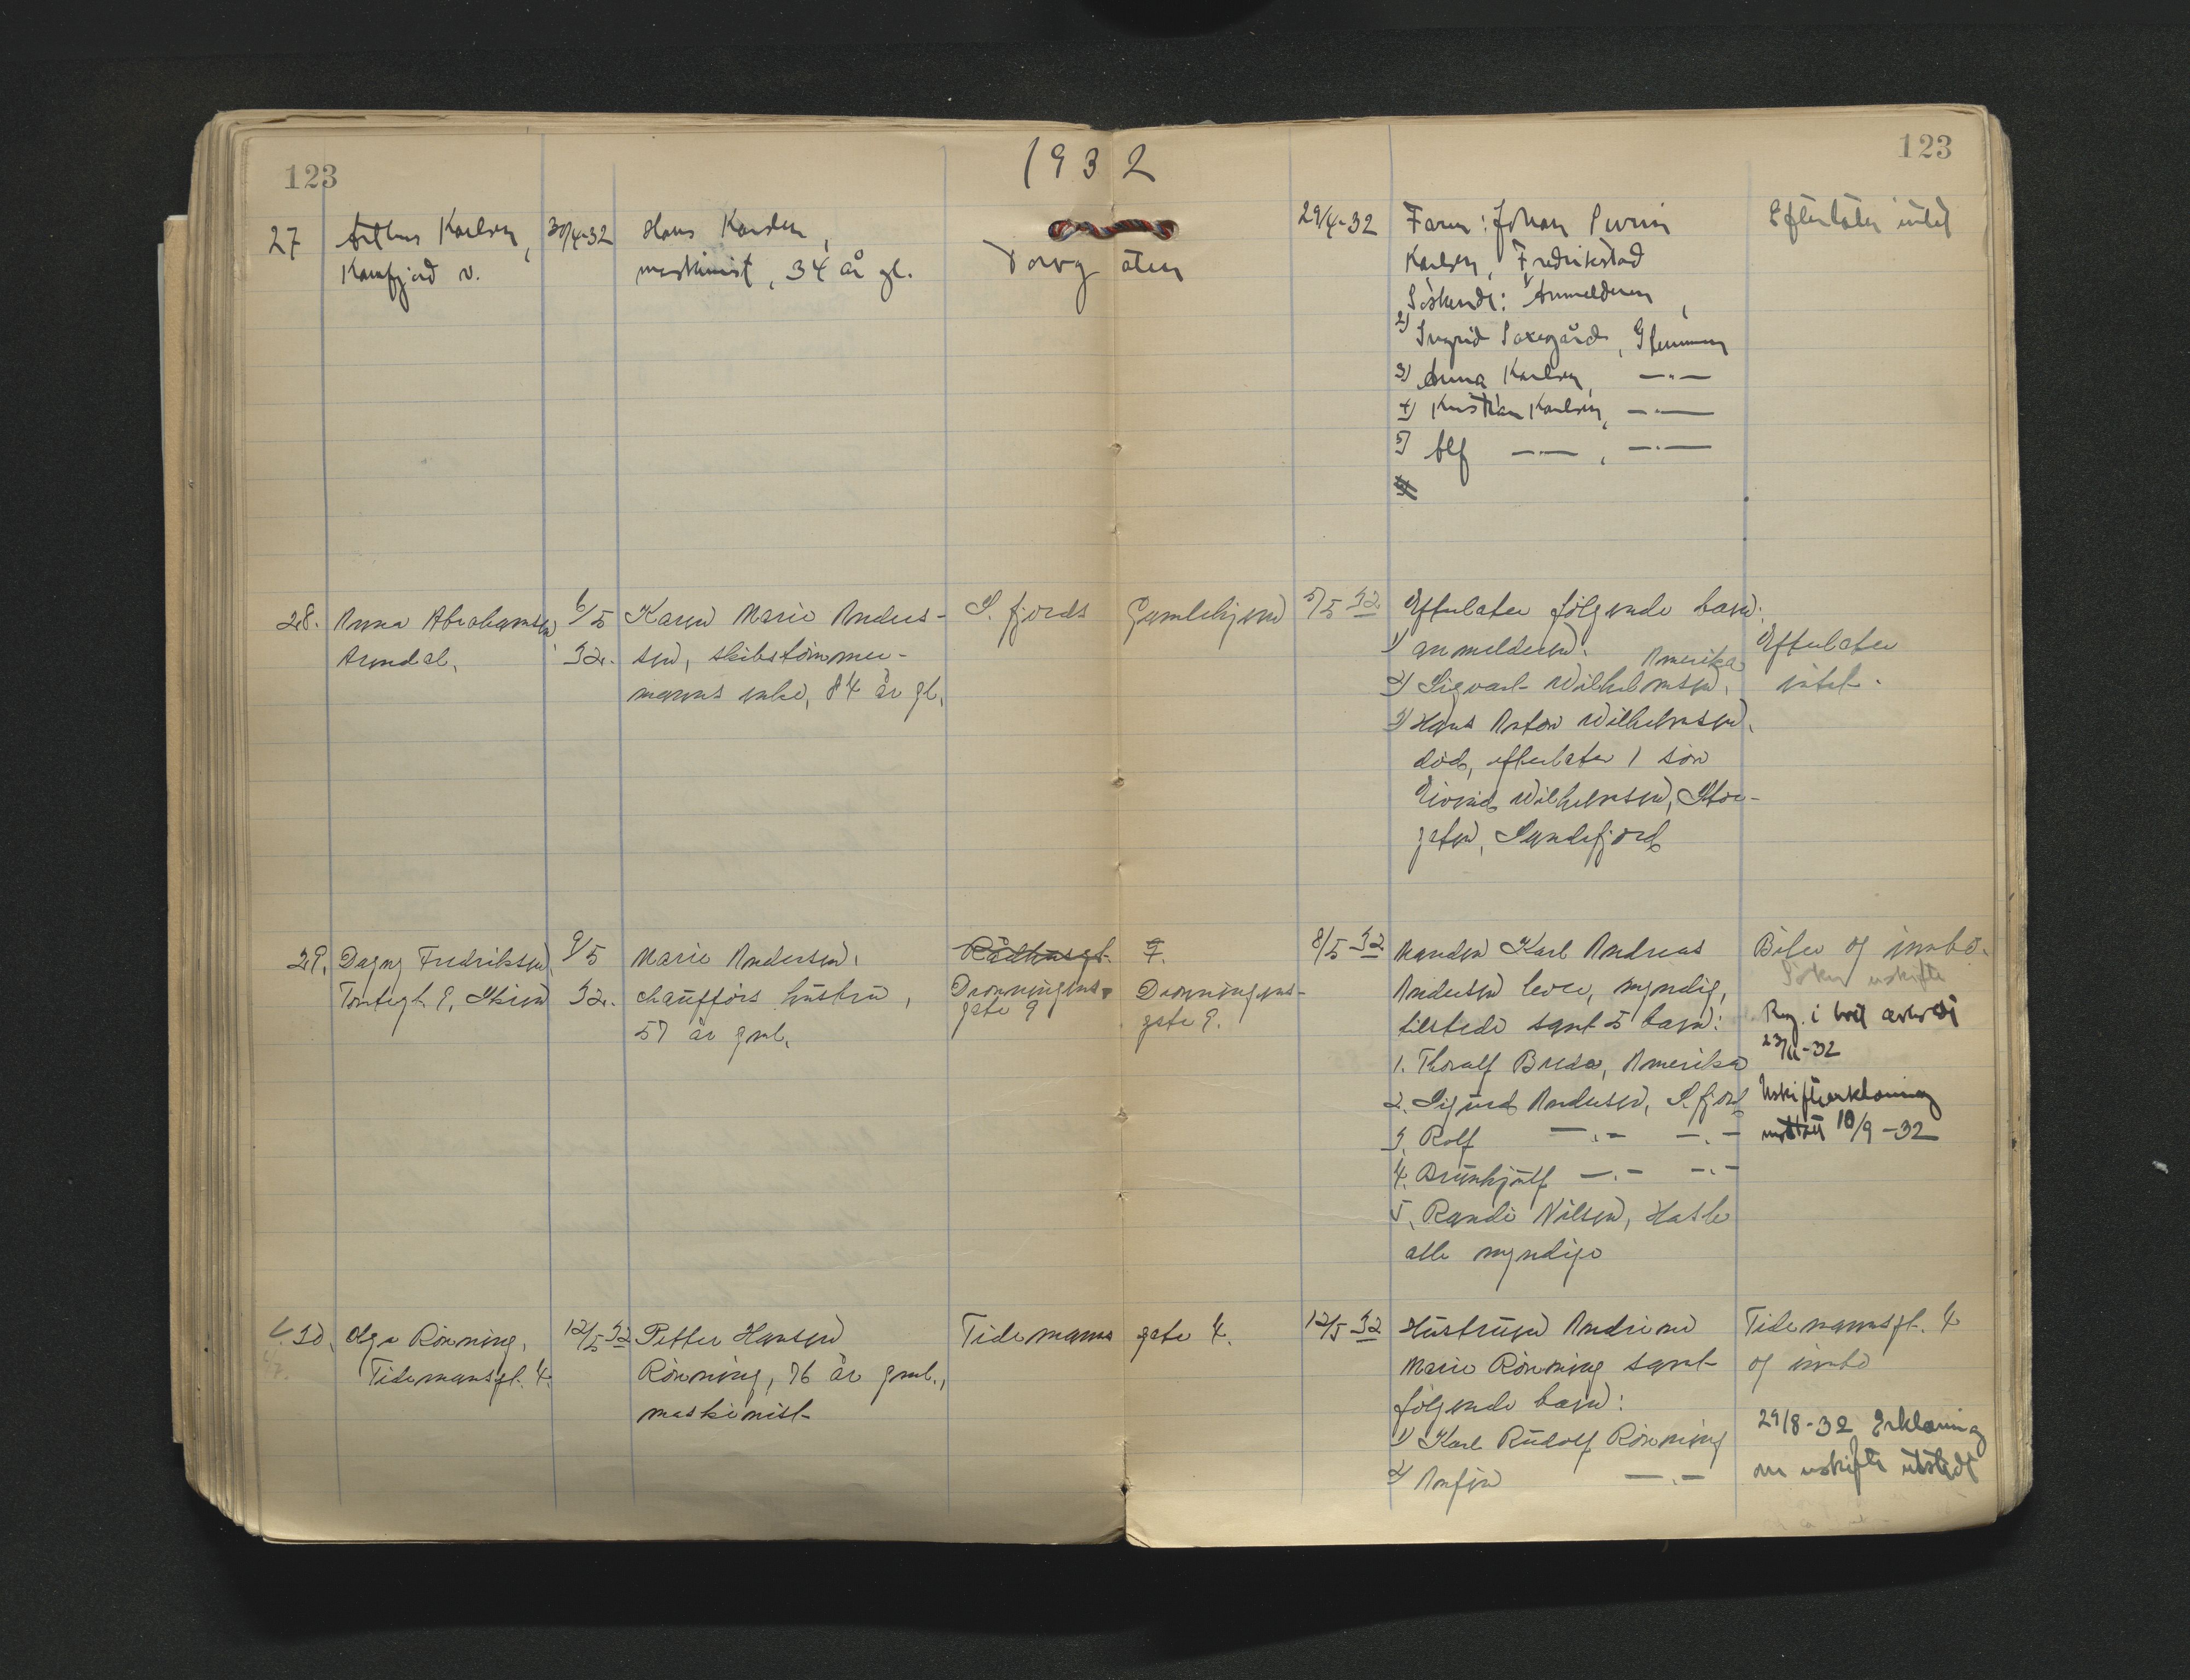 123
1932
123
27
Arthur Karlsen,
Kamfjord v.
30/4-32
Hans Karlsen,
maskinist, 34 år gl.
Torvgaten
29/4-32
Faren: Johan
Karlsen, Fredrikstad
Søskende: 1) Anmelderen,
2) Ingrid Saxegård, Glemmen
3) Anna Karlsen, —"—
4) Kristian Karlsen, —"—
5) Alf —"—, —"—
Efterlater intet
28.
Anna Abrahamsen
Arendal.
6/5
32.
Karen Marie Anders-
sen, skibstømmer-
manns enke, 84 år gl.
S.fjords Gamlehjem
5/5 32
Efterlater følgende barn:
1) anmelderen.
2) Sigvart Wilhelmsen, Amerika
3) Hans Anton Wilhelmsen,
død, efterlater 1 søn
Eivind Wilhelmsen, Stor-
gaten, Sandefjord
Efterlater
intet.
29.
Dagny Fredriksen
9, Skien
9/5
32.
Marie Andersen,
chaufførs hustru,
57 år gml.
Rådhusgt. 7.
Dronningens
gate 9
Dronningens-
gate 9.
8/5 32
Manden Karl Andreas
Andersen lever, myndig,
tilstede samt 5 barn:
1. Thoralf Breda, Amerika
2. Sigurd Andersen, S.fjord
3. Rolf —"— —"—
4. Brynhjulf —"— —"—
5. Randi Nilsen, Hasle
alle myndige
Biler og innbo.
Søker uskifte
Reg. i
23/11-32
Uskifteerklæring
mottatt 10/9-32
30.
Olga Rönning,
Tidemansgt. 4.
12/5 32
Petter Hansen
Rönning, 76 år gml.,
maskinist
Tidemanns gate 4.
12/5 32
Hustruen Andrine
Marie Rönning samt
følgende barn:
1) Karl Rudolf Rönning
2) Anfin —"—
Tidemannsgt. 4
og innbo
29/8-32 Erklæring
om uskifte utstedt